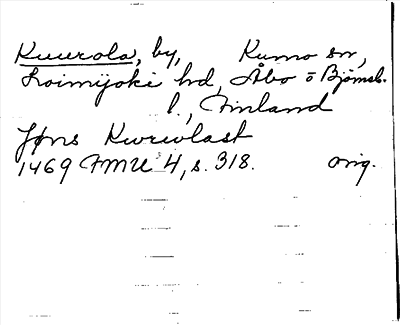 Kuurola, by, Kumo sn,
Loimijoki hd, Åbo o Björneb.
l., Finland
Jöns Kwrwlast
1469 FMU 4, s. 318. orig.